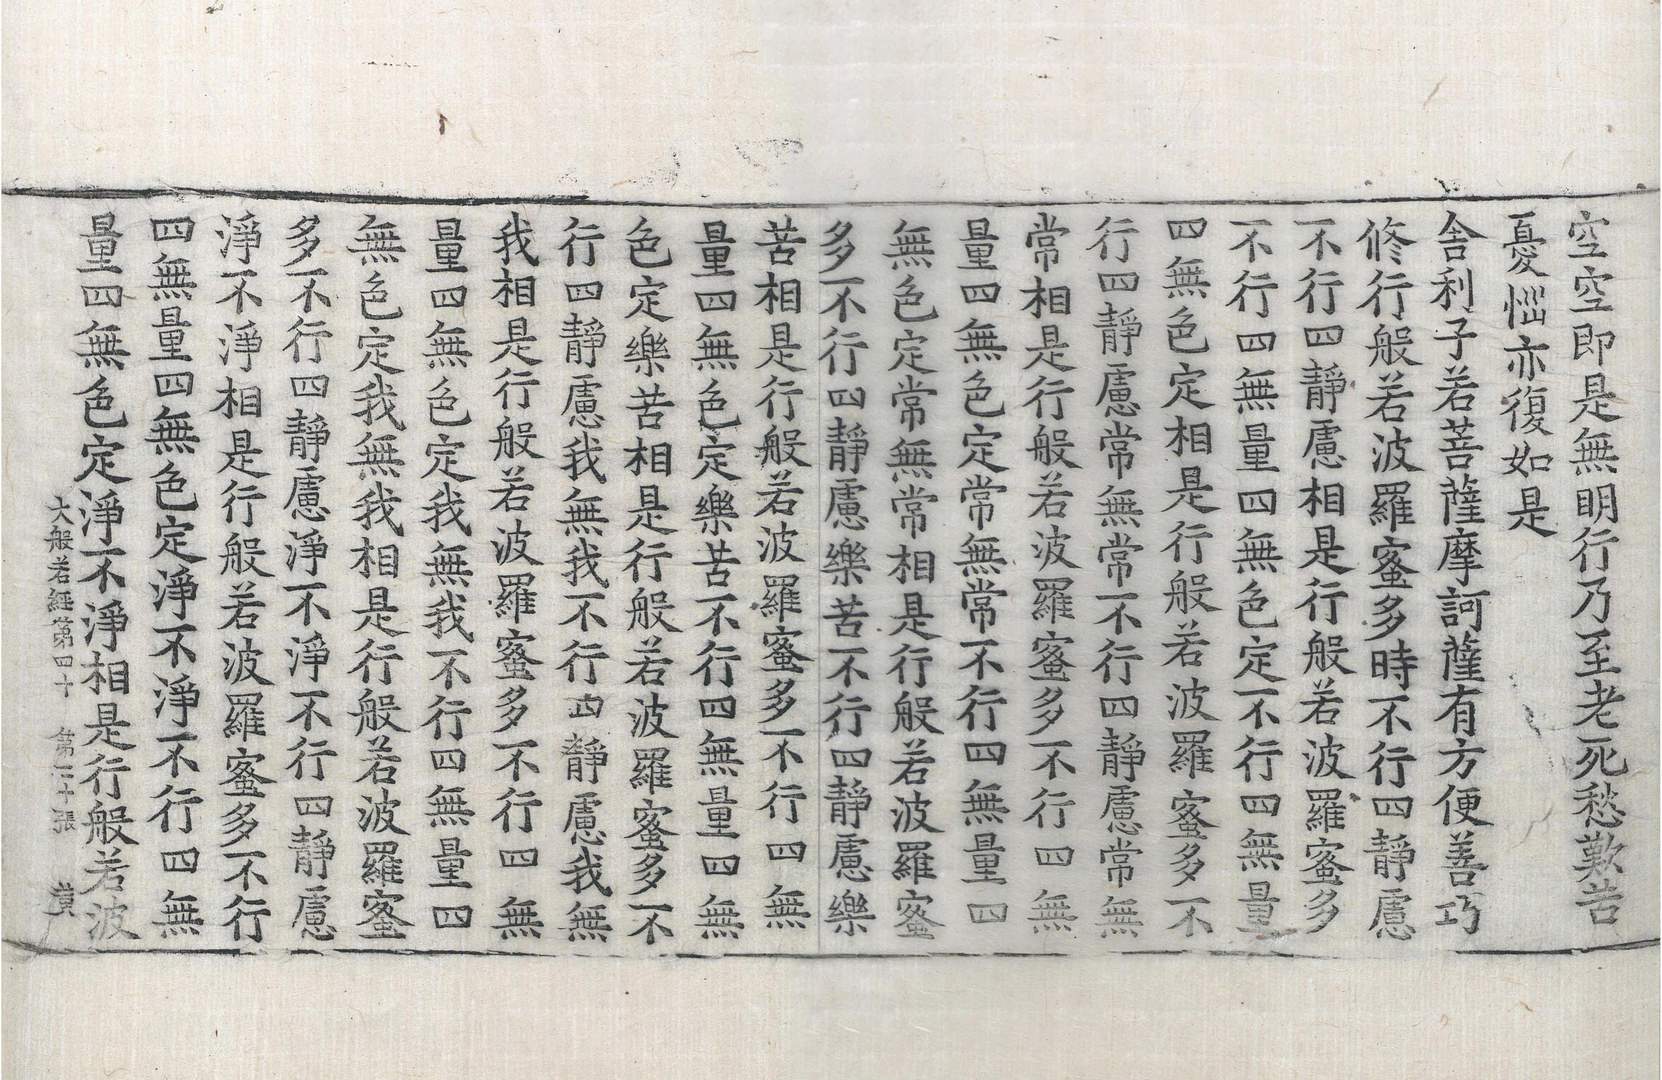 空空即是無明行乃至老死愁歎苦
憂惱亦復如是
舍利子若菩薩摩訶薩有方便善巧
修行般若波羅蜜多時不行四靜慮
不行四靜慮相是行般若波羅蜜多
不行四無量四無色定不行四無量
四無色定相是行般若波羅蜜多不
行四靜慮常無常不行四靜慮常無
常相是行般若波羅蜜多不行四無
量四無色定常無常不行四無量四
無色定常無常相是行般若波羅蜜
多不行四靜慮樂苦不行四靜慮樂
苦相是行般若波羅蜜多不行四無
量四無色定樂苦不行四無量四無
色定樂苦相是行般若波羅蜜多不
行四靜慮我無我不行四靜慮我無
我相是行般若波羅蜜多不行四無
量四無色定我無我不行四無量四
無色定我無我相是行般若波羅蜜
多不行四靜慮淨不淨不行四靜慮
淨不淨相是行般若波羅蜜多不行
四無量四無色定淨不淨不行四無
量四無色定淨不淨相是行般若波
大般若經第四十